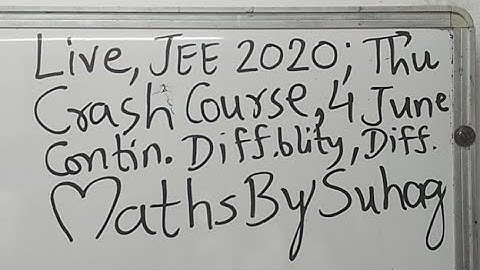 Live, JEE 2020; Thu
Crash Course, 4 June
Contin. Diff.blity, Diff.
MathsBySuhag